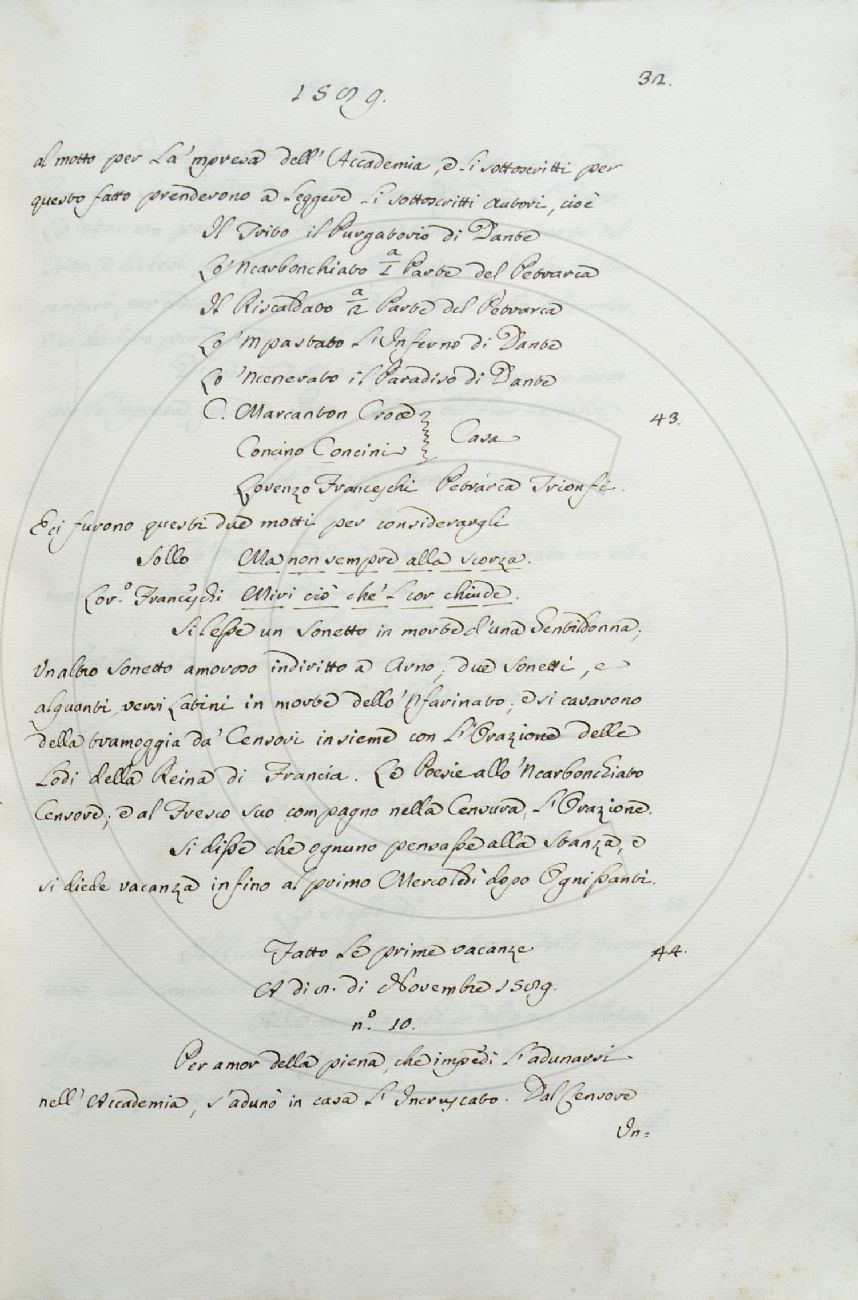 1589.
32.
al motto per la 'mpresa dell' Accademia, e li sottoscritti per
questo fatto prenderono a leggere li sottoscritti autori, cioè
Il Trito il Purgatorio di Dante
Lo 'Ncarbonchiato 1ª Parte del Petrarca
Il Riscaldato 2ª Parte del Petrarca
Lo 'mpastato l'Inferno di Dante
Lo 'Ncenerato il Paradiso di Dante
C. Marcanton Croce 43.
Concino Concini } Casa
Lorenzo Franceschi Petrarca Trionfi.
E ci furono questi due motti per considerargli
Sollo Ma non sempre alla scorza.
Lor.º Franceschi Miri ciò che 'l cor chiude.
Si lesse un Sonetto in morte d'una Gentildonna;
Un altro Sonetto amoroso indiritto a Arno; due Sonetti, e
alquanti versi Latini in morte dello 'nfarinato; e si cavarono
della tramoggia da' Censori insieme con l'Orazione delle
Lodi della Reina di Francia. Le Poesie allo 'Ncarbonchiato
Censore; e al Fresco suo compagno nella Censura, l'Orazione.
Si disse che ognuno pensasse alla Stanza, e
si diede vacanza infino al primo Mercoledì dopo Ognissanti.
Fatto le prime vacanze 44.
A di 8. di Novembre 1589.
n.º 10.
Per amor della piena, che impedì l'adunarsi
nell' Accademia, s'adunò in casa l'Incruscato. Dal Censore
In=